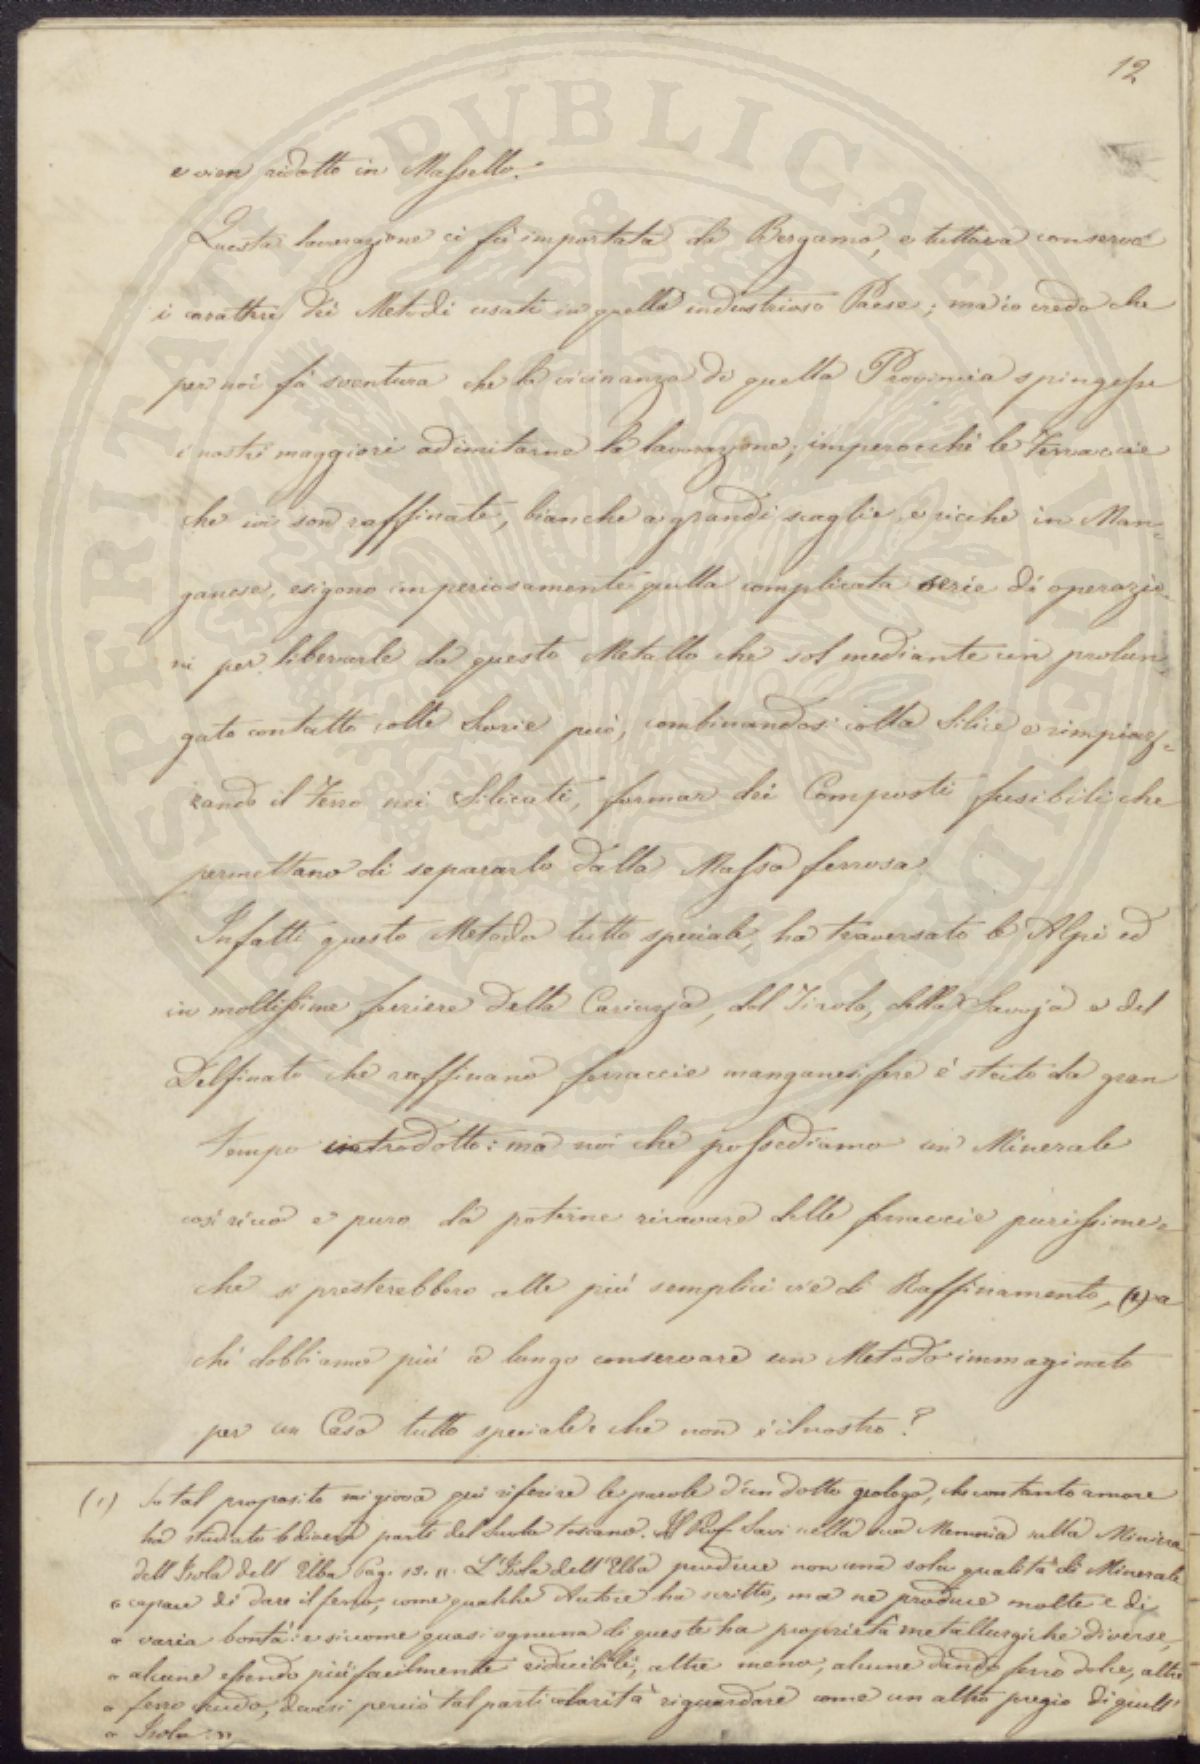 12
e vien ridotto in Massello.
Questa lavorazione ci fù importata da Bergamo, e tuttora conserva
i caratteri dei Metodi usati in quello industrioso Paese; ma io credo che
per noi fù sventura che la vicinanza di quella Provincia spingesse
i nostri maggiori ad imitarne la lavorazione; imperocché le Ferraccie
che ivi son raffinate, bianche a grandi scaglie, e ricche in Man-
ganese, esigono imperiosamente quella complicata serie di operazio-
ni per liberarle da questo Metallo che sol mediante un prolun
gato contatto colle Scorie può, combinandosi colla Silice e rimpiaz-
zando il Ferro nei Silicati, formar dei Composti fusibili che
permettano di separarlo dalla Massa ferrosa
Infatti questo Metodo tutto speciale, ha traversato le Alpi ed
in moltissime ferriere della Carinzia, del Tirolo, della Savoja e del
Delfinato che raffinano ferraccie manganesifere è stato da gran
tempo introdotto: ma noi che possediamo un Minerale
così ricco e puro da poterne ricavare delle ferraccie purissime
che si presterebbero alle più semplici vie di Raffinamento, (1) a
chè dobbiamo più a lungo conservare un Metodo immaginato
per un Caso tutto speciale che non è il nostro?
(1) In tal proposito mi giova qui riferire le parole d'un dotto geologo, che con tanto amore
ha studiato le diverse parti del Suolo toscano. Il Prof. Savi nella sua Memoria sulla Miniera
dell'Isola dell'Elba Pag. 13. ". L'Isola dell'Elba produce non una sola qualità di Minerale
" capace di dare il ferro, come qualche Autore ha scritto, ma ne produce molte e di
" varia bontà: e siccome quasi ognuna di queste ha proprietà metallurgiche diverse,
" alcune essendo più facilmente riducibili, altre meno, alcune dando ferro dolce, altre
" ferro crudo, devesi perciò tal particolarità riguardare come un altro pregio di quell'
" Isola. "
SPERITATI PUBLICAE